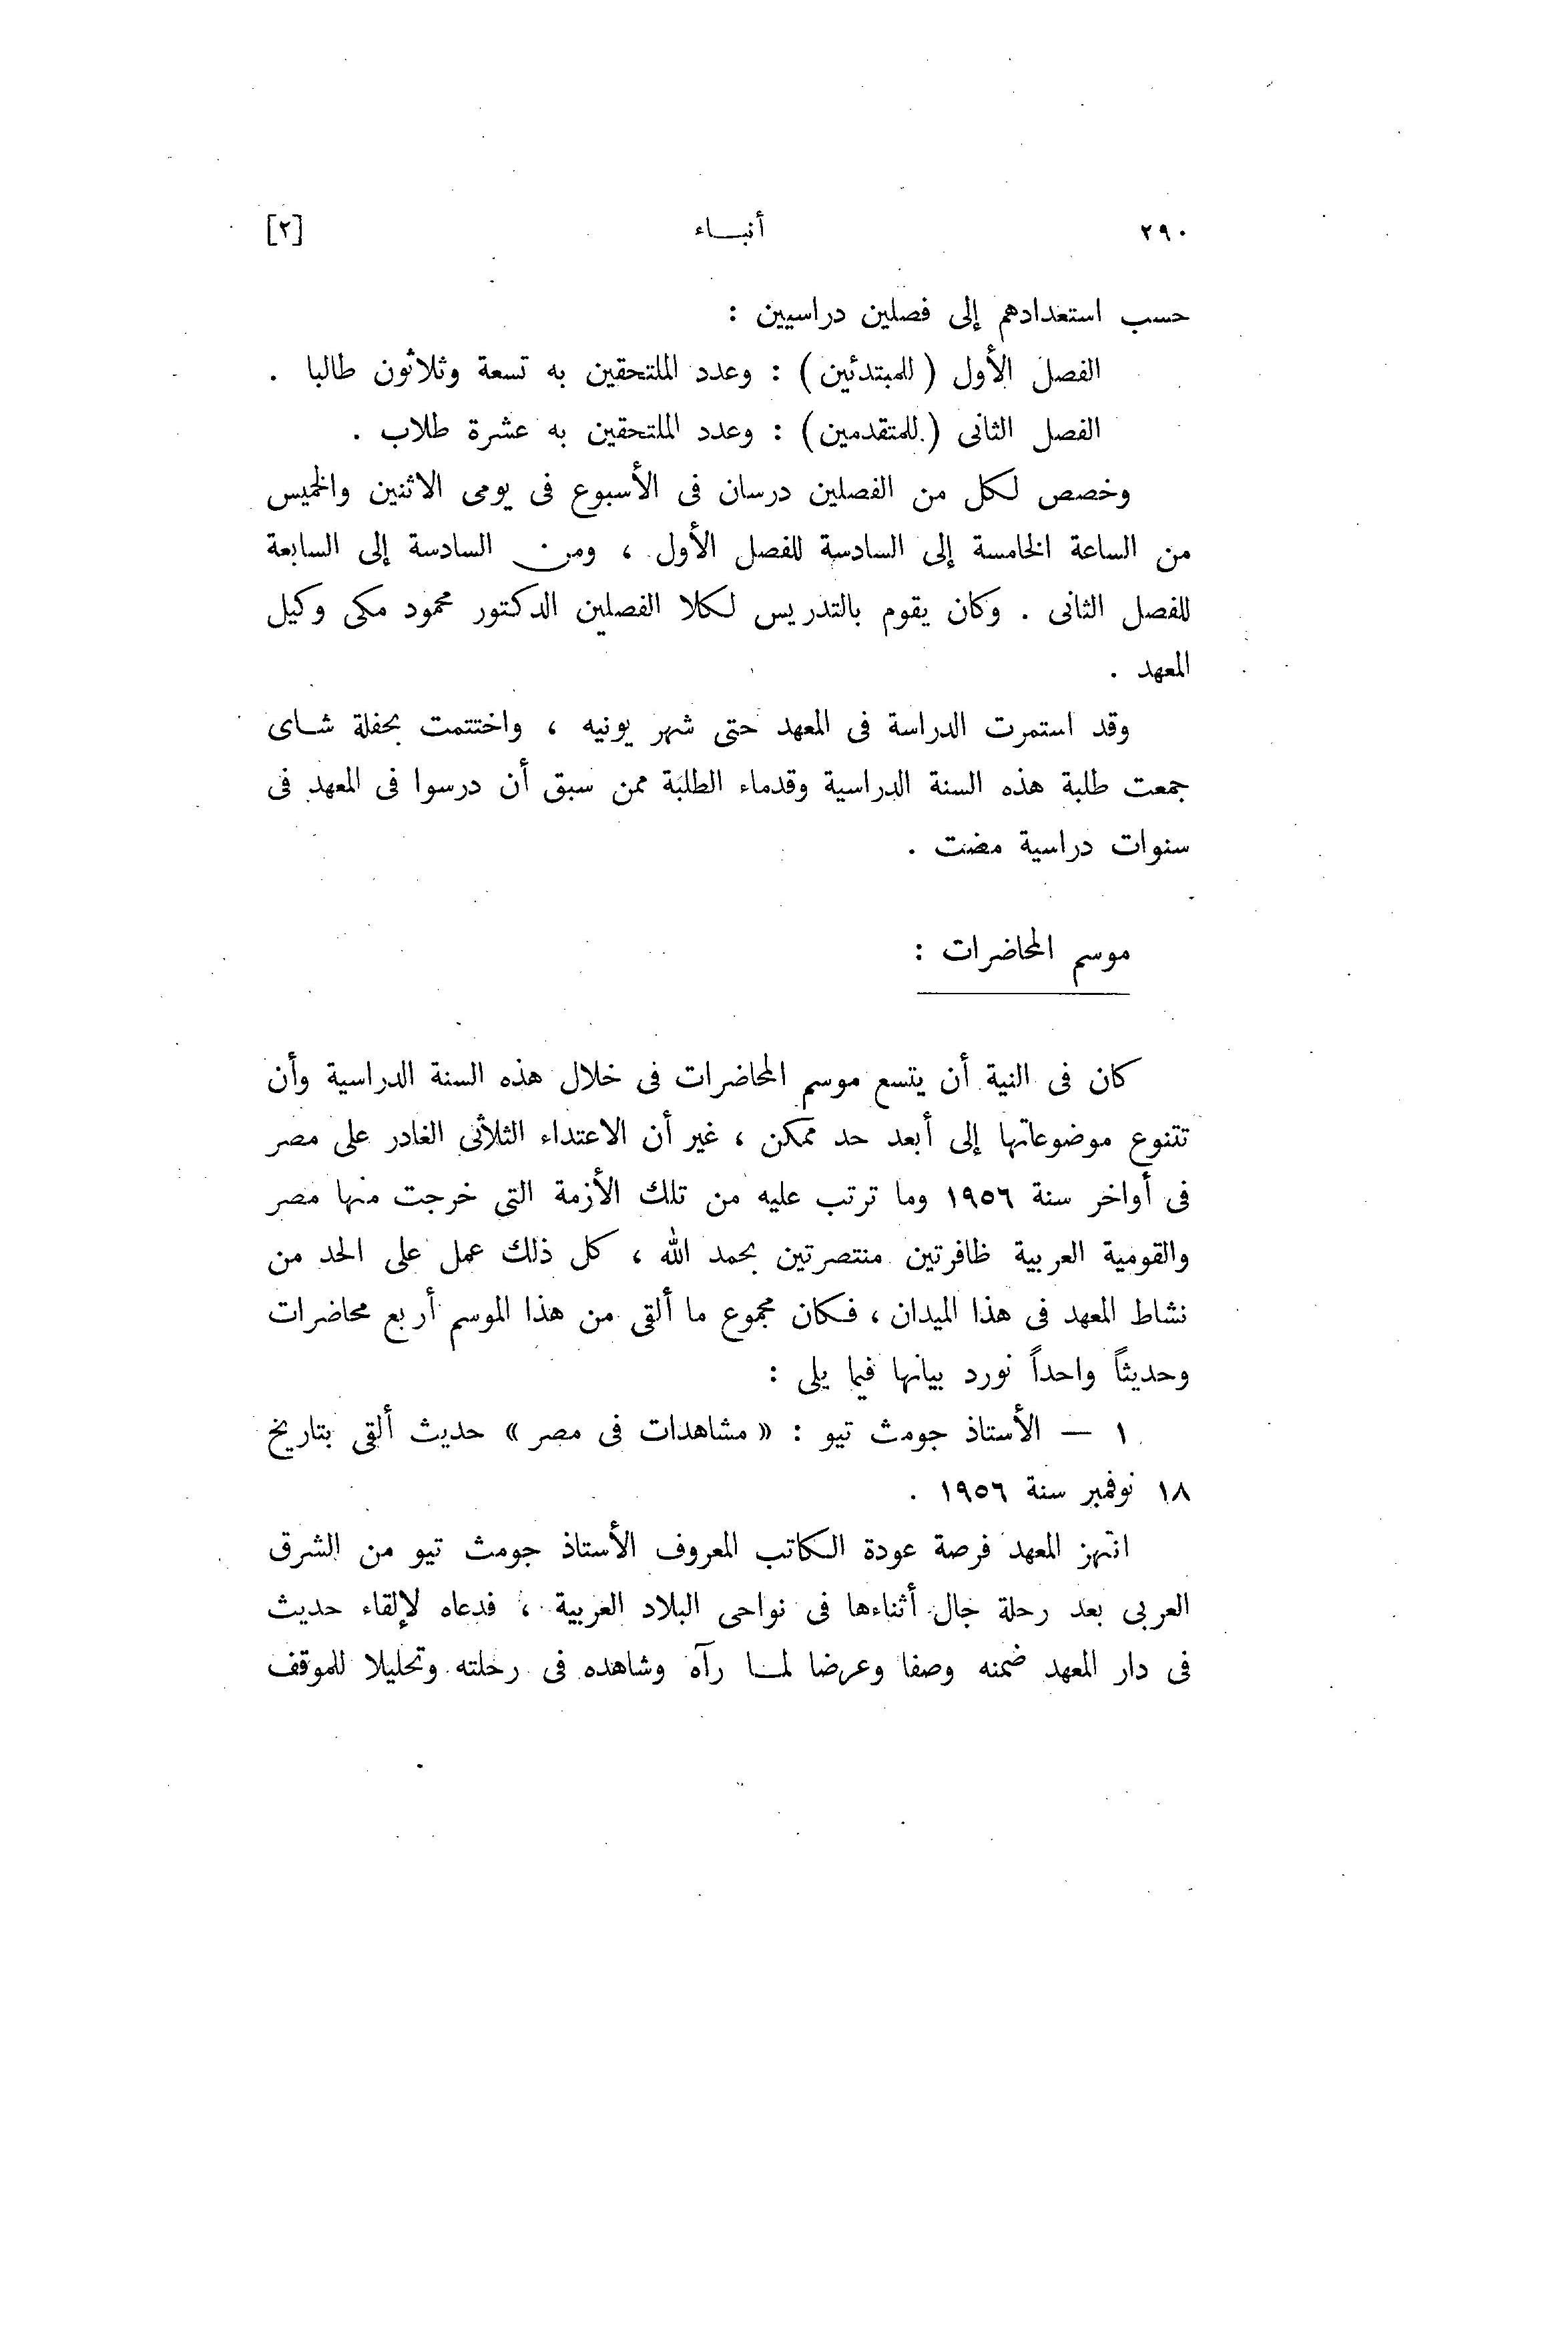 ٢٩٠ أنباء [٢]
حسب استعدادهم إلى فصلين دراسيين :
الفصل الأول ( للمبتدئين ) : وعدد الملتحقين به تسعة وثلاثون طالبا .
الفصل الثانى ( للمتقدمين ) : وعدد الملتحقين به عشرة طلاب .
وخصص لكل من الفصلين درسان فى الأسبوع فى يومى الاثنين والخميس
من الساعة الخامسة إلى السادسة للفصل الأول ، ومن السادسة إلى السابعة
للفصل الثانى . وكان يقوم بالتدريس لكلا الفصلين الدكتور محمود مكى وكيل
المعهد .
وقد استمرت الدراسة فى المعهد حتى شهر يونيه ، واختتمت بحفلة شاى
جمعت طلبة هذه السنة الدراسية وقدماء الطلبة ممن سبق أن درسوا فى المعهد فى
سنوات دراسية مضت .
موسم المحاضرات :
كان فى النية أن يتسع موسم المحاضرات فى خلال هذه السنة الدراسية وأن
تتنوع موضوعاتها إلى أبعد حد ممكن ، غير أن الاعتداء الثلاثى الغادر على مصر
فى أواخر سنة ١٩٥٦ وما ترتب عليه من تلك الأزمة التى خرجت منها مصر
والقومية العربية ظافرتين منتصرتين بحمد الله ، كل ذلك عمل على الحد من
نشاط المعهد فى هذا الميدان ، فكان مجموع ما ألقى من هذا الموسم أربع محاضرات
وحديثاً واحداً نورد بيانها فيما يلى :
١ — الأستاذ جومث تيو : « مشاهدات فى مصر » حديث ألقى بتاريخ
١٨ نوفمبر سنة ١٩٥٦ .
انتهز المعهد فرصة عودة الكاتب المعروف الأستاذ جومث تيو من الشرق
العربى بعد رحلة جال أثناءها فى نواحى البلاد العربية ، فدعاه لإلقاء حديث
فى دار المعهد ضمنه وصفا وعرضا لما رآه وشاهده فى رحلته وتحليلا للموقف